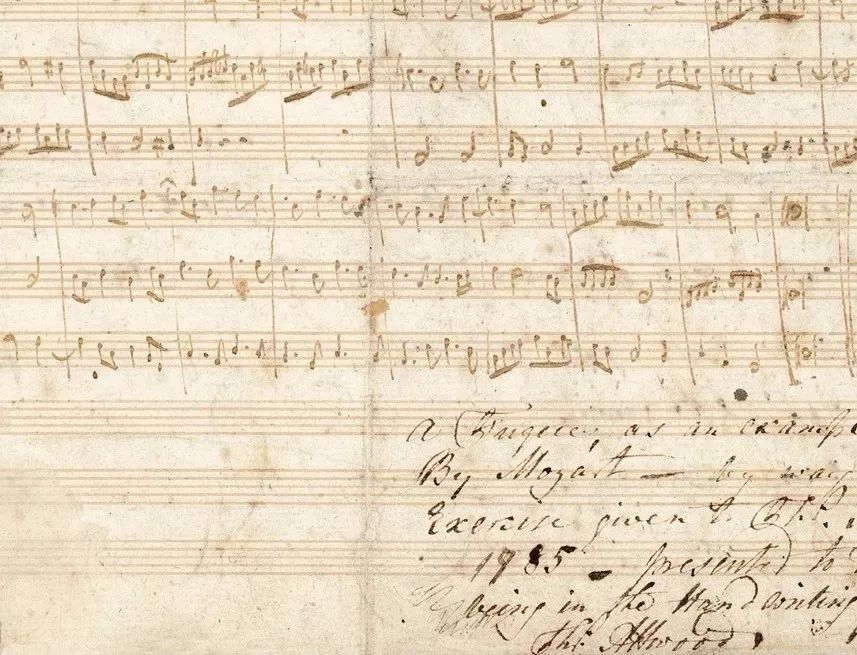 a Fugue, as an example
By Mozart — by way
Exercise given to Thos.
1785 — presented to
being in the Hand writing
Thos. Attwood